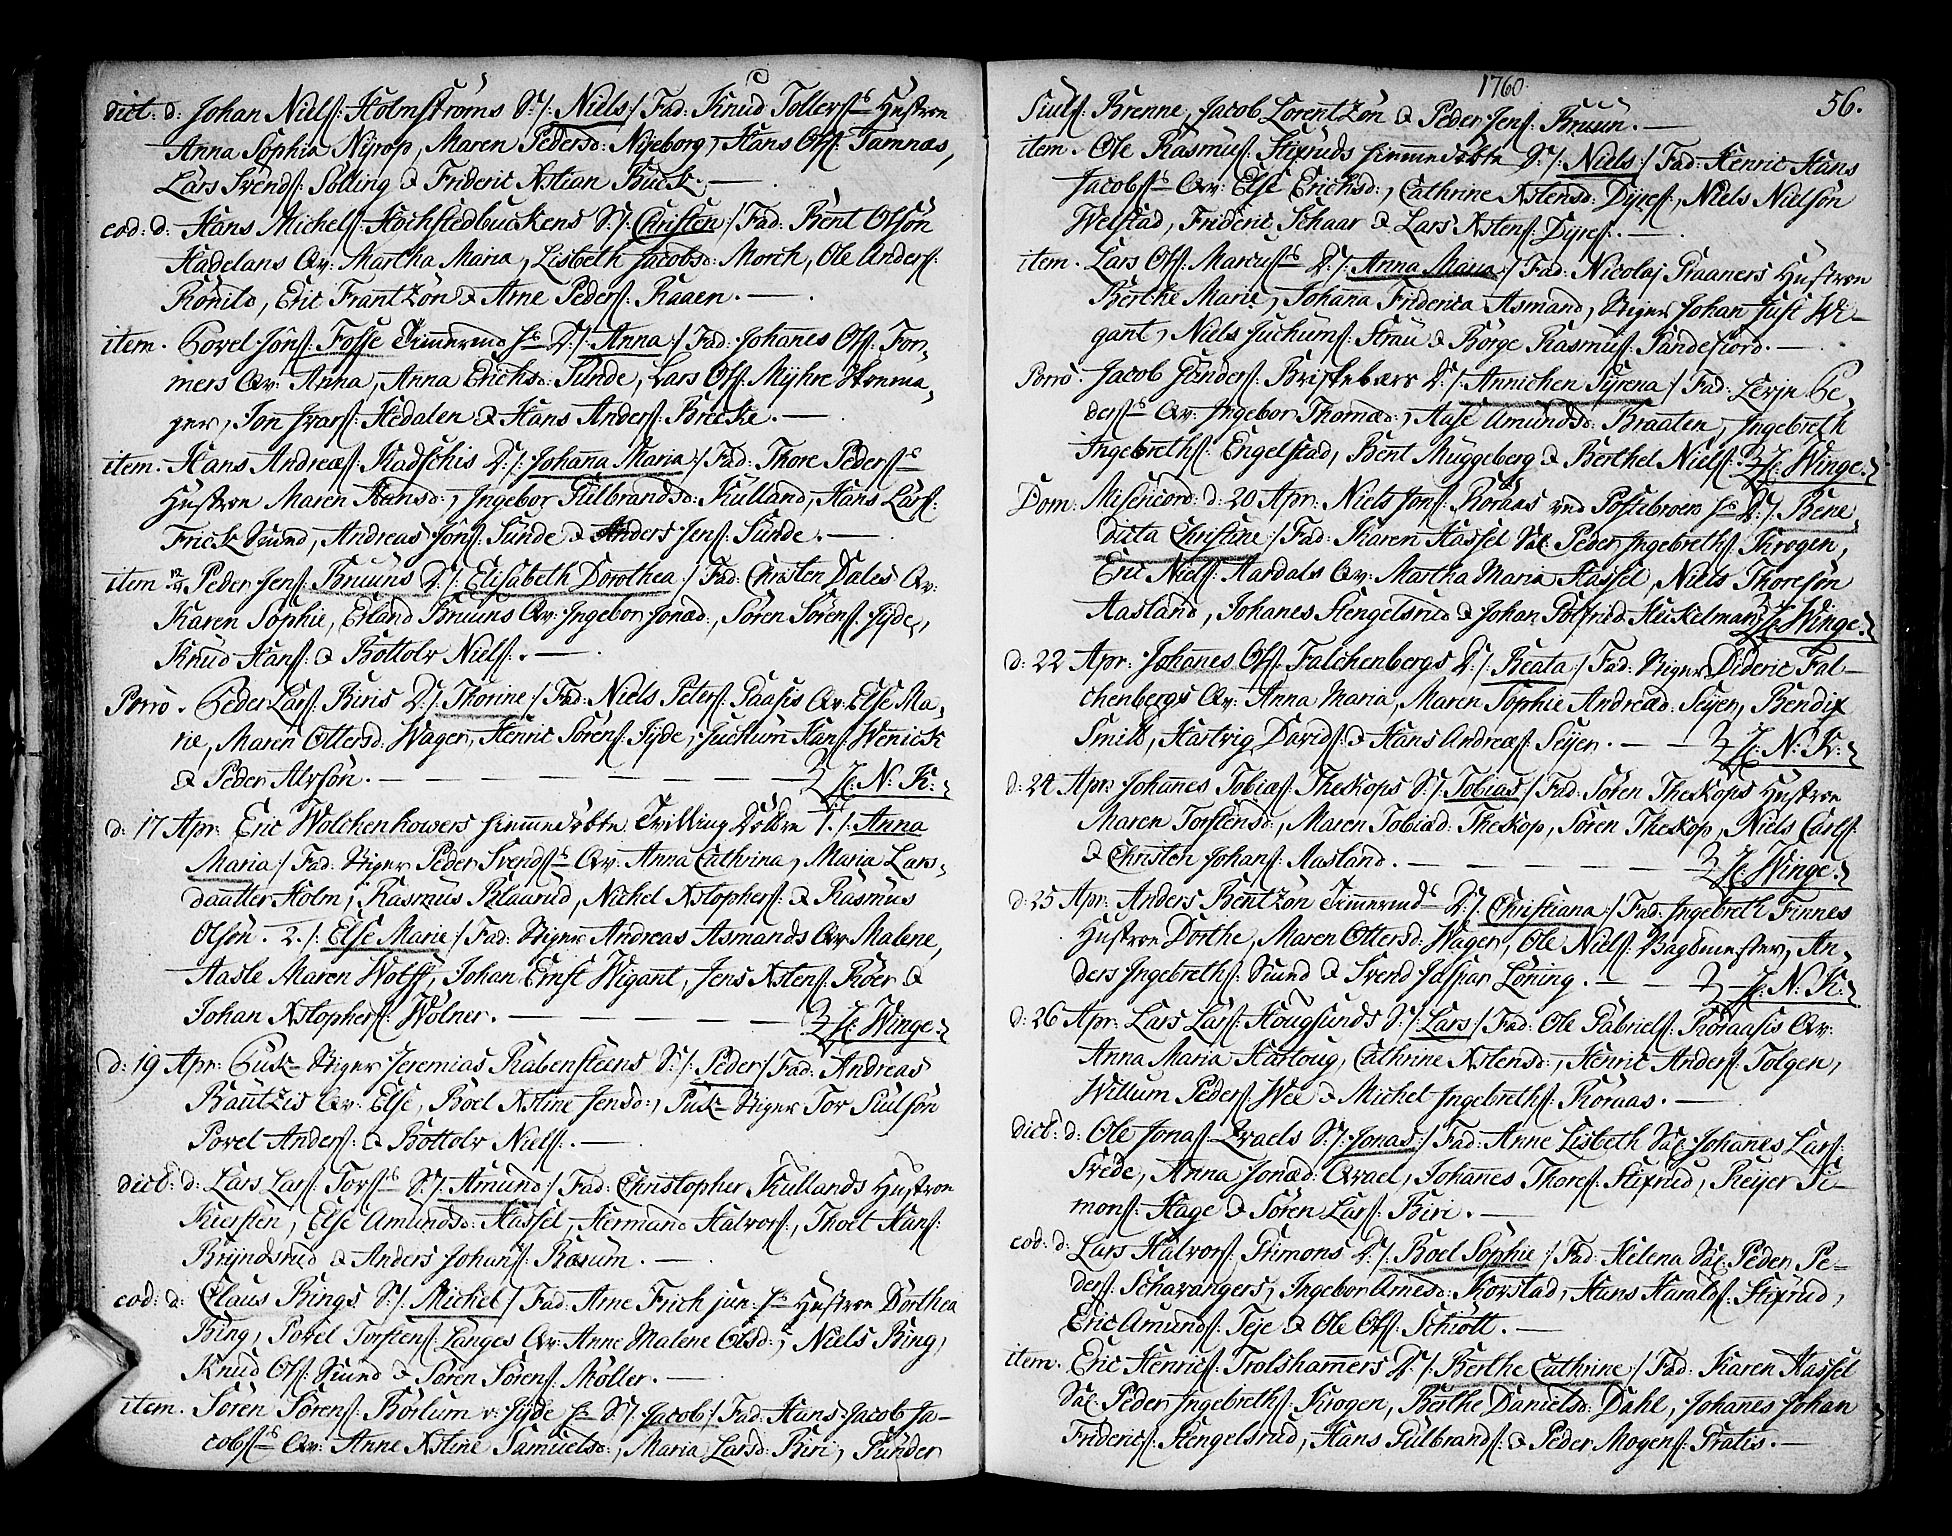 dict: d: Johan Niels: Holmstrøms S:/: Niels:/ Fad: Knud Tollers: Hustroe
Anna Sophia Nyrop, Maren Pedersd: Nyeborg, Hans Ols: Tamnæs,
Lars Svends: Sølling & Frideric Xstian Buck. —
eod: d: Hans Michels: Hochstedbuckens S:/: Christen:/ Fad: Bent Olsøn
Hadelans Qv: Martha Maria, Lisbeth Jacobsd: Morch, Ole Anders:
Eric Frantzøn & Arne Peders: Raaen. —
item. Povel Jøns: Fosse Timmermd D:/: Anna:/ Fad: Johannes Ols: For,
mers Qv: Anna, Anna Erichsd: Sunde, Lars Ols: Myhre
ger, Jon Ivars: Hedalen & Hans Anders: Brecke. —
item. Hans Andreæs: Kadschis D:/: Johana Maria:/ Fad: Thore Peders:
Hustroe Maren Hansd:, Ingebor Gulbrandsd: Kulland, Hans Lars:
Frick Smed, Andreas Jøns: Sunde & Anders Jens: Sunde. —
item Peder Jens: Bruuns D:/: Elisabeth Dorothea:/ Fad: Christen Dales Qv:
Karen Sophie, Erland Bruuns Qv: Ingebor Jonæd:, Søren Sørens: Jyde,
Knud Hans: & Bottolv Niels:. —
Porrò. Peder Lars: Biris D:/: Thorine:/ Fad: Niels Peters: Gaasis Qv: Else Ma,
rie, Maren Ottersd: Wager, Henric Sørens: Jyde, Juchum Hans: Wenick
& Peder Alvsøn. — H: N: K:
d: 17 Apr: Eric Wolchenhowers hiemmedøbte Tvilling Døttre 1./: Anna
Maria:/ Fad: Stiger Peder Svends: Qv: Anna Cathrina, Maria Lars,
daatter Holm, Rasmus Blaarud, Nickel Xstophers: & Rasmus
Olsøn. 2./: Else Marie:/ Fad: Stiger Andreas Asmands Qv: Malene,
Aasle Maren Wolff, Johan Ernst Wigant, Jens Xstens: Røer &
Johan Xstophers: Wølner. — H: Winge.
d: 19 Apr: Puk- Stiger Jeremias Rabensteens S:/: Peder:/ Fad: Andreas
Bautzis Qv: Else, Boel Xstine Jensd:, Puk- Stiger Tor Juulsøn
Povel Anders: & Bottolv Niels:. —
dict: d: Lars Lars: Tors: S:/: Amund:/ Fad: Christopher Kullands Hustroe
Kiersten, Else Amundsd: Hassel, Herman Halvors:, Thoet Hans:
Bryndsrud & Anders Johans: Bærum. —
eod: d: Claus Bings S:/: Michel:/ Fad: Arne Frich jun: Hustroe Dorthea
Bing, Povel Torstens: Langes Qv: Anne Malene Olsd:, Niels Bing,
Knud Ols: Smed & Søren Sørens: Møller. —
item. Søren Sørens: Børlum v: Jyde S:/: Jacob:/ Fad: Hans Jacob Ja-
cobs: Qv: Anne Xstine Samuelsd:, Maria Larsd: Biri, Gunder
1760.
56.
Juuls: Brenne, Jacob Lorentzøn & Peder Jens: Bruun. —
item. Ole Rasmus: Stixruds hiemmedøbte S:/: Niels:/ Fad: Henric Hans
Jacobs: Qv: Else Erichsd:, Cathrine Xstensd: Dyres:, Niels Nielsøn
Welstad, Frideric Schaar & Lars Xstens: Dyres:. —
item. Lars Ols: Marcus: D:/: Anna Maria:/ Fad: Nicolaj Praaners Hustroe
Berthe Marie, Johana Friderica Asmand, Stiger Johan Just Wi-
gant, Niels Juchums: Strau & Børge Rasmus: Sandefiord. —
Porrò. Jacob Gunders: Briskebærs D:/: Annichen Syrena:/ Fad: Levjn Pe,
ders: Qv: Ingebor Thomæd:, Aase Amundsd: Braaten, Ingebreth
Ingebreths: Engelstad, Bent Muggeberg & Berthel Niels: H: Winge.
Dom: Misericord: d: 20 Apr: Niels Jons: Roraas ved Postebroen D:/: Bene,
dicta Christine:/ Fad: Karen Hassel Sal: Peder Ingebreths: Krogen,
Eric Niels: Hardals Qv: Martha Maria Hassel, Niels Thoresøn
Aasland, Johanes Stengelsrud & Johan Gotfried Heickelman H: Winge.
d: 22 Apr: Johanes Ols: Falchenbergs D:/: Beata:/ Fad: Stiger Dideric Fal-
chenbergs Qv: Anna Maria, Maren Sophie Andreæd: Seyer, Bendix
Smith, Hartvig Davids: & Hans Andreæs: Seyer. — H: N: K:
d: 24 Apr: Johanes Tobiæs: Theskops S:/: Tobias:/ Fad: Søren Theskops Hustroe
Maren Torstensd:, Maren Tobiæd: Theskop, Søren Theskop, Niels Carls:
& Christen Johans: Aasland. — H: Winge.
d: 25 Apr: Anders Bentzøn Timmermd D:/: Christiana:/ Fad: Ingebreth Finnes
Hustroe Dorthe, Maren Ottersd: Wager, Ole Niels: Bagsmester, An,
ders Ingebreths: Smed & Svend Jaspar Løning. — H: N: K:
d: 26 Apr: Lars Lars: Hougsunds S:/: Lars:/ Fad: Ole Gabriels: Roraasis Qv:
Anna Maria Hartoug, Cathrine Xstensd:, Henric Anders: Tolgen,
Willum Peders: Wee & Michel Ingebreths: Roraas. —
dict: d: Ole Jonas: Qvaels S:/: Jonas:/ Fad: Anne Lisbeth Sal: Johanes Lars:
Svede, Anna Jonæd: Qvael, Johanes Thores: Stixrud, Reyer Si-
mons: Hage & Søren Lars: Biri. —
eod: d: Lars Halvors: Grimons D:/: Boel Sophie:/ Fad: Helena Sal: Peder Pe-
ders: Schavangers, Ingebor Arnesd: Korstad, Hans Haralds: Stixrud,
Eric Amunds: Teje & Ole Ols: Schiøtt. —
item. Eric Henrics: Trolshamers D:/: Berthe Cathrine:/ Fad: Karen Hassel
Sal: Peder Ingebreths: Krogen, Berthe Danielsd: Dahl, Johanes Johan
Friderics: Stengelsrud, Hans Gulbrands: & Peder Mogens: Gratis. —